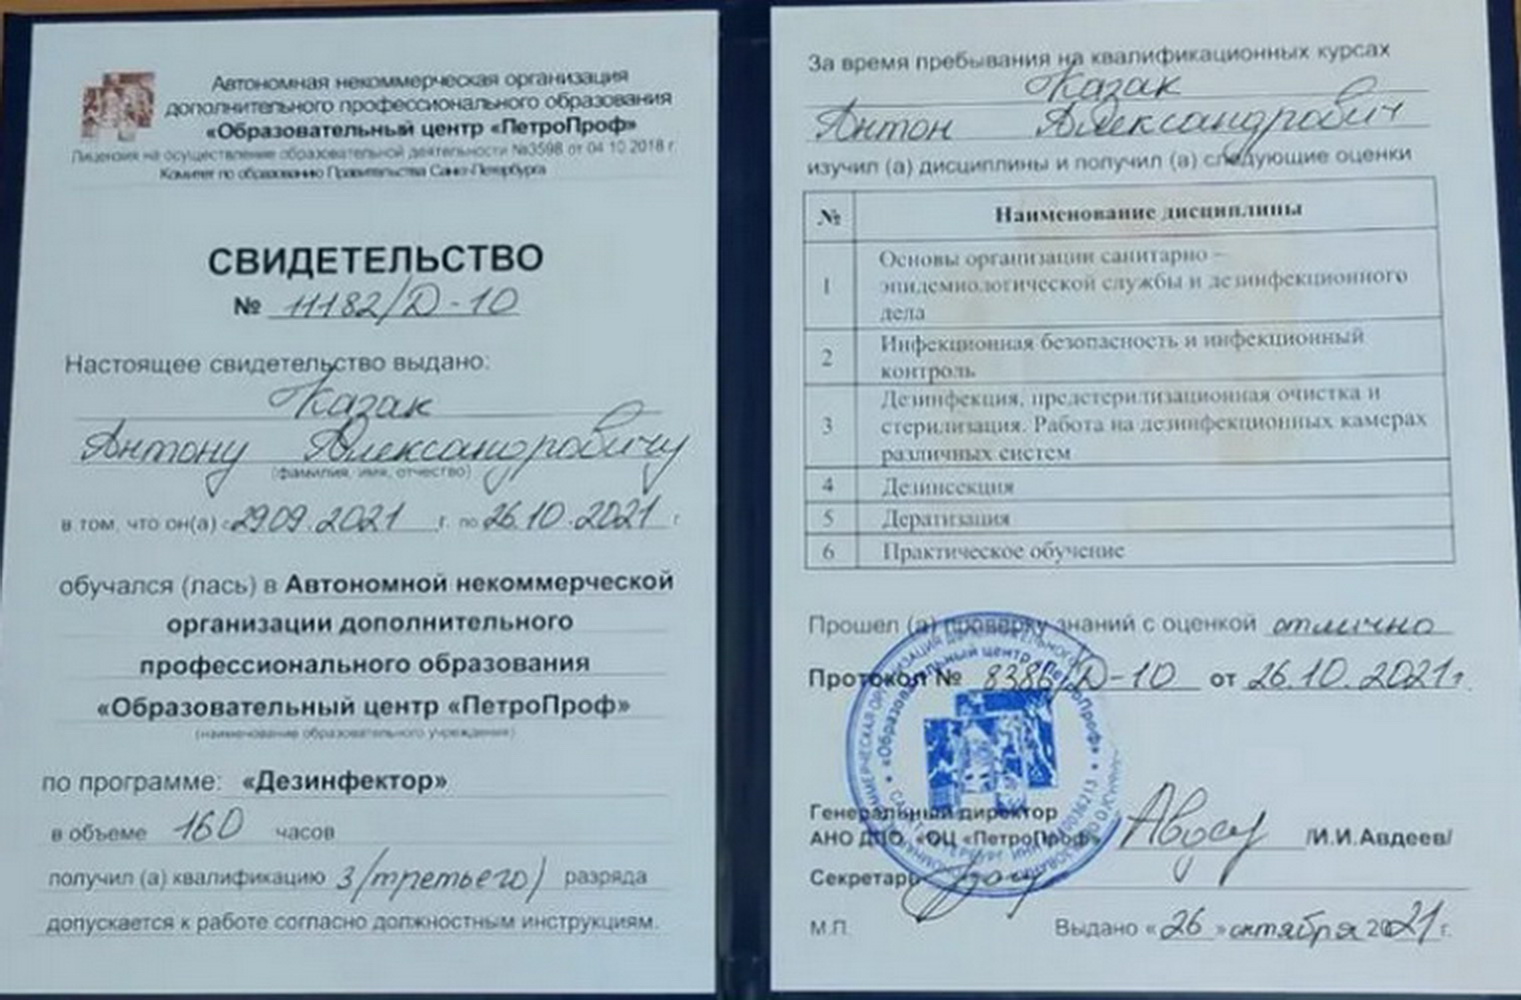 Автономная некоммерческая организация
дополнительного профессионального образования
«Образовательный центр «ПетроПроф»
Лицензия на осуществление образовательной деятельности №3598 от 04.10.2018 г.
Комитет по образованию Правительства Санкт-Петербурга
СВИДЕТЕЛЬСТВО
№ 11182/Д-10
Настоящее свидетельство выдано:
Казак
Антону Александровичу
(фамилия, имя, отчество)
в том, что он(а) с 29.09.2021 г. по 26.10.2021 г
обучался (лась) в Автономной некоммерческой
организации дополнительного
профессионального образования
«Образовательный центр «ПетроПроф»
(наименование образовательного учреждения)
по программе: «Дезинфектор»
в объеме 160 часов
получил (а) квалификацию 3/третьего) разряда
допускается к работе согласно должностным инструкциям.
За время пребывания на квалификационных курсах
Казак
Антон Александрович
изучил (а) дисциплины и получил (а) следующие оценки
№ Наименование дисциплины
1 Основы организации санитарно –
эпидемиологической службы и дезинфекционного
дела
2 Инфекционная безопасность и инфекционный
контроль
3 Дезинфекция, предстерилизационная очистка и
стерилизация. Работа на дезинфекционных камерах
различных систем
4 Дезинсекция
5 Дератизация
6 Практическое обучение
Прошел (а) проверку знаний с оценкой отлично
Протокол № 8386/Д-10 от 26.10.2021г.
«Образовательный центр «ПетроПроф»
Генеральный директор
АНО ДПО «ОЦ «ПетроПроф» /И.И.Авдеев/
Секретарь
М.П. Выдано «26» октября 2021 г.